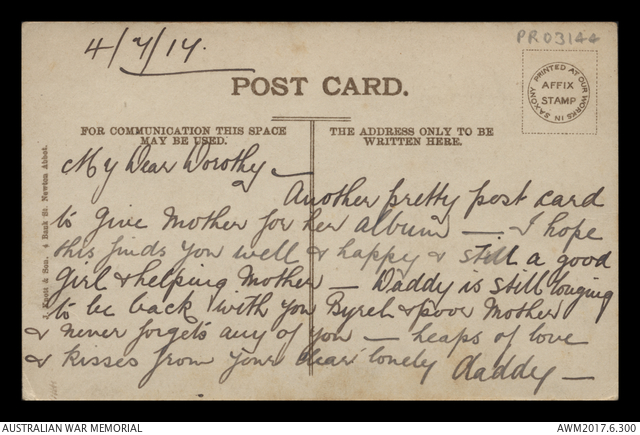 PR03144
4/7/17.
POST CARD.
PRINTED AT OUR WORKS IN SAXONY
AFFIX
STAMP
FOR COMMUNICATION THIS SPACE
MAY BE USED.
THE ADDRESS ONLY TO BE
WRITTEN HERE.
My Dear Dorothy –
Another pretty post card
to give Mother for her album – I hope
this finds you well & happy & still a good
girl & helping Mother – Daddy is still longing
to be back with you Byrel & poor Mother
& never forgets any of you – heaps of love
& kisses from your dear lonely daddy –
& Son, 4 Bank St. Newton Abbot.
AUSTRALIAN WAR MEMORIAL
AWM2017.6.300